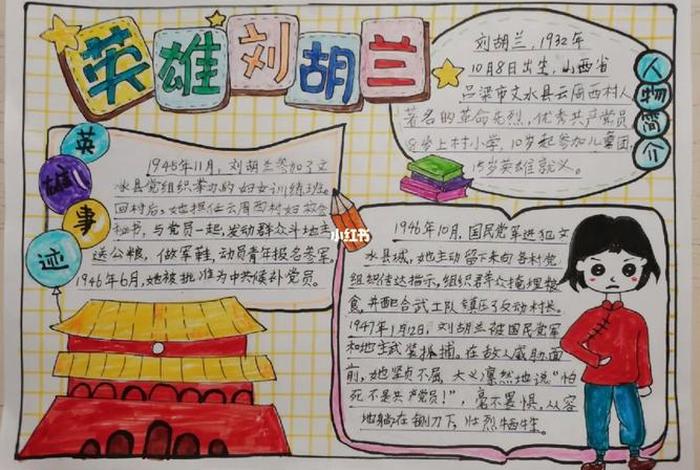 英雄刘胡兰
人物简介
刘胡兰,1932年
10月8日出生,山西省
吕梁市文水县云周西村人
著名的革命先烈,优秀共产党员
8岁上村小学,10岁起参加儿童团.
15岁英雄就义。
英雄事迹
1945年11月,刘胡兰参加了文
水县党组织举办的妇女训练班。
回村后,她担任云周西村妇救会
秘书,与党员一起,发动群众斗地主
送公粮,做军鞋,动员青年报名参军。
1946年6月,她被批准为中共候补党员。
小红书
1946年10月,国民党军进犯文
水县城,她主动留下来向各村党
组织传达指示,组织群众掩埋粮
食,并配合武工队镇压了反动村长。
1947年1月12日,刘胡兰被国民党军
和地主武装抓捕。在敌人威胁面
前,她坚贞不屈,大义凛然地说“怕
死不是共产党员!”,毫不畏惧,从容
地躺在铡刀下,壮烈牺牲。